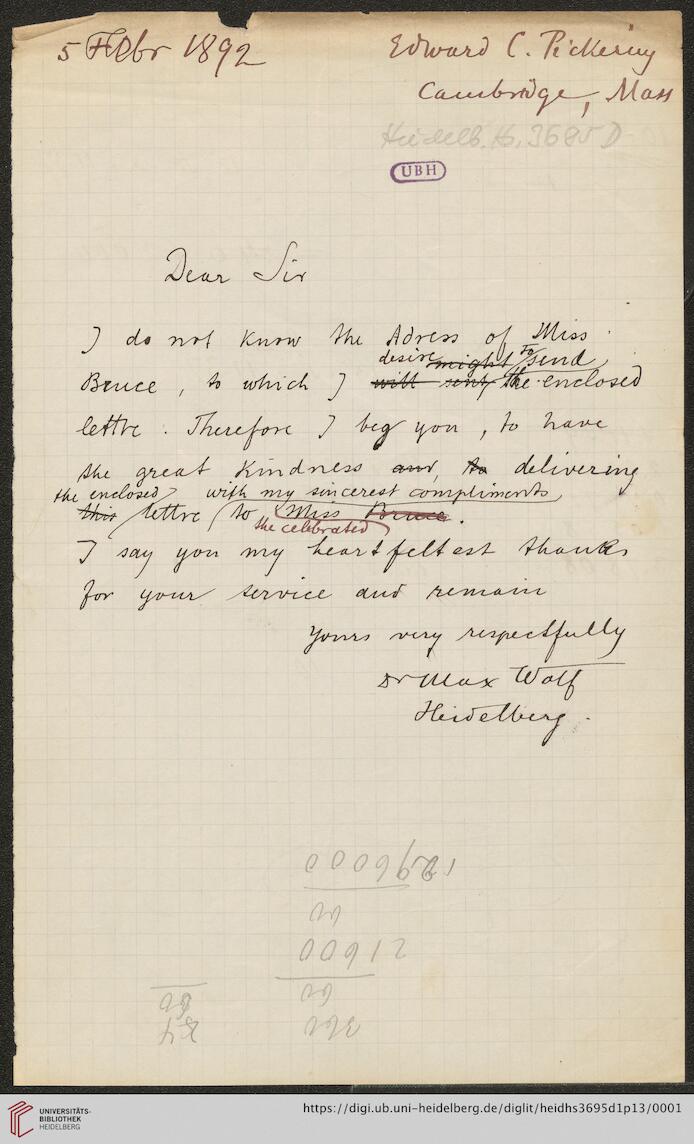 5 Febr 1892
Edward C. Pickering
Cambridge, Mass
Heidelb. Hs. 3695 D
UBH
Dear Sir
I do not know the Adress of Miss
desire might to send
Bruce, to which I will sent the enclosed
lettre. Therefore I beg you, to have
the great kindness and, to delivering
the enclosed with my sincerest compliments
this lettre to Miss Bruce.
the celebrated
I say you my heartfeltest thanks
for your service and remain
Yours very respectfully
Dr Max Wolf
Heidelberg.
UNIVERSITÄTS-
BIBLIOTHEK
HEIDELBERG
https://digi.ub.uni-heidelberg.de/diglit/heidhs3695d1p13/0001